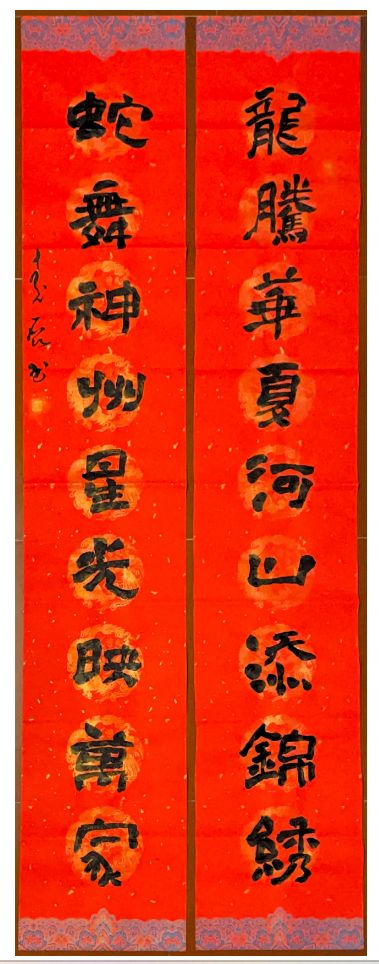 龍騰華夏河山添錦綉
蛇舞神州星光映萬家